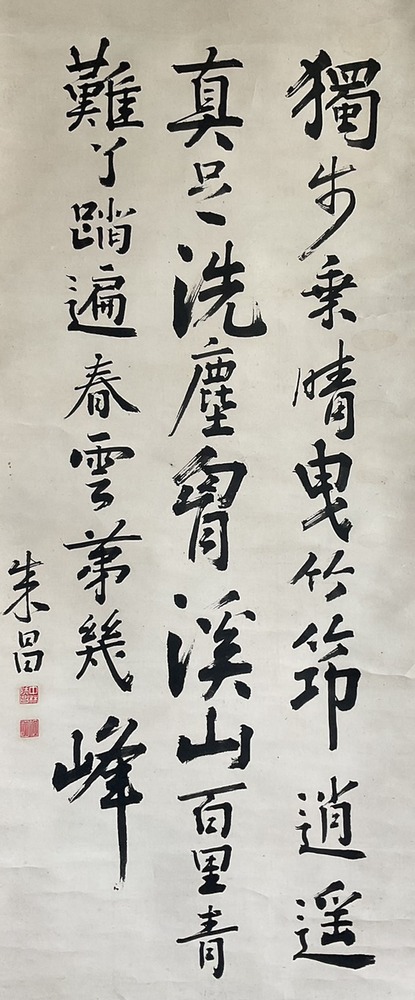 獨步乘晴曳竹筇逍遥
真足洗塵胷溪山百里青
難了踏遍春雲第幾峰
朱昌